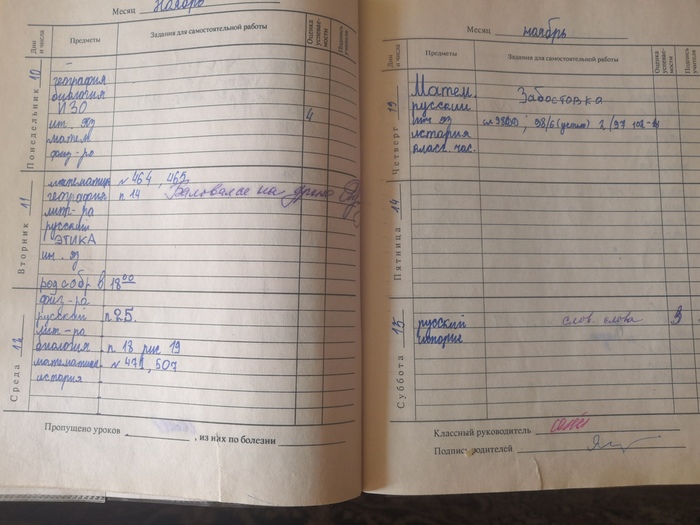 Месяц ноябрь
Дни и числа
Предметы
Задания для самостоятельной работы
Оценка успеваемости
Подпись учителя
Понедельник 10
-
география
биология
ИЗО
ин. яз 4
матем
физ-ра
Вторник 11
математика № 464, 465
география п. 14 Баловался на уроке
лит-ра
русский
ЭТИКА
ин. яз
род собр в 18 00
Среда 12
физ-ра
русский п 25.
лит-ра
биология п. 18 рис 19
математика № 471, 507
история
Пропущено уроков , из них по болезни
Месяц ноябрь
Дни и числа
Предметы
Задания для самостоятельной работы
Оценка успеваемости
Подпись учителя
Четверг 13
Матем.
русский Забостовка
ин яз 98/6 (устно) 2/97
история
класс. час.
Пятница 14
Суббота 15
русский слов. слова 3
история
Классный руководитель
Подпись родителей